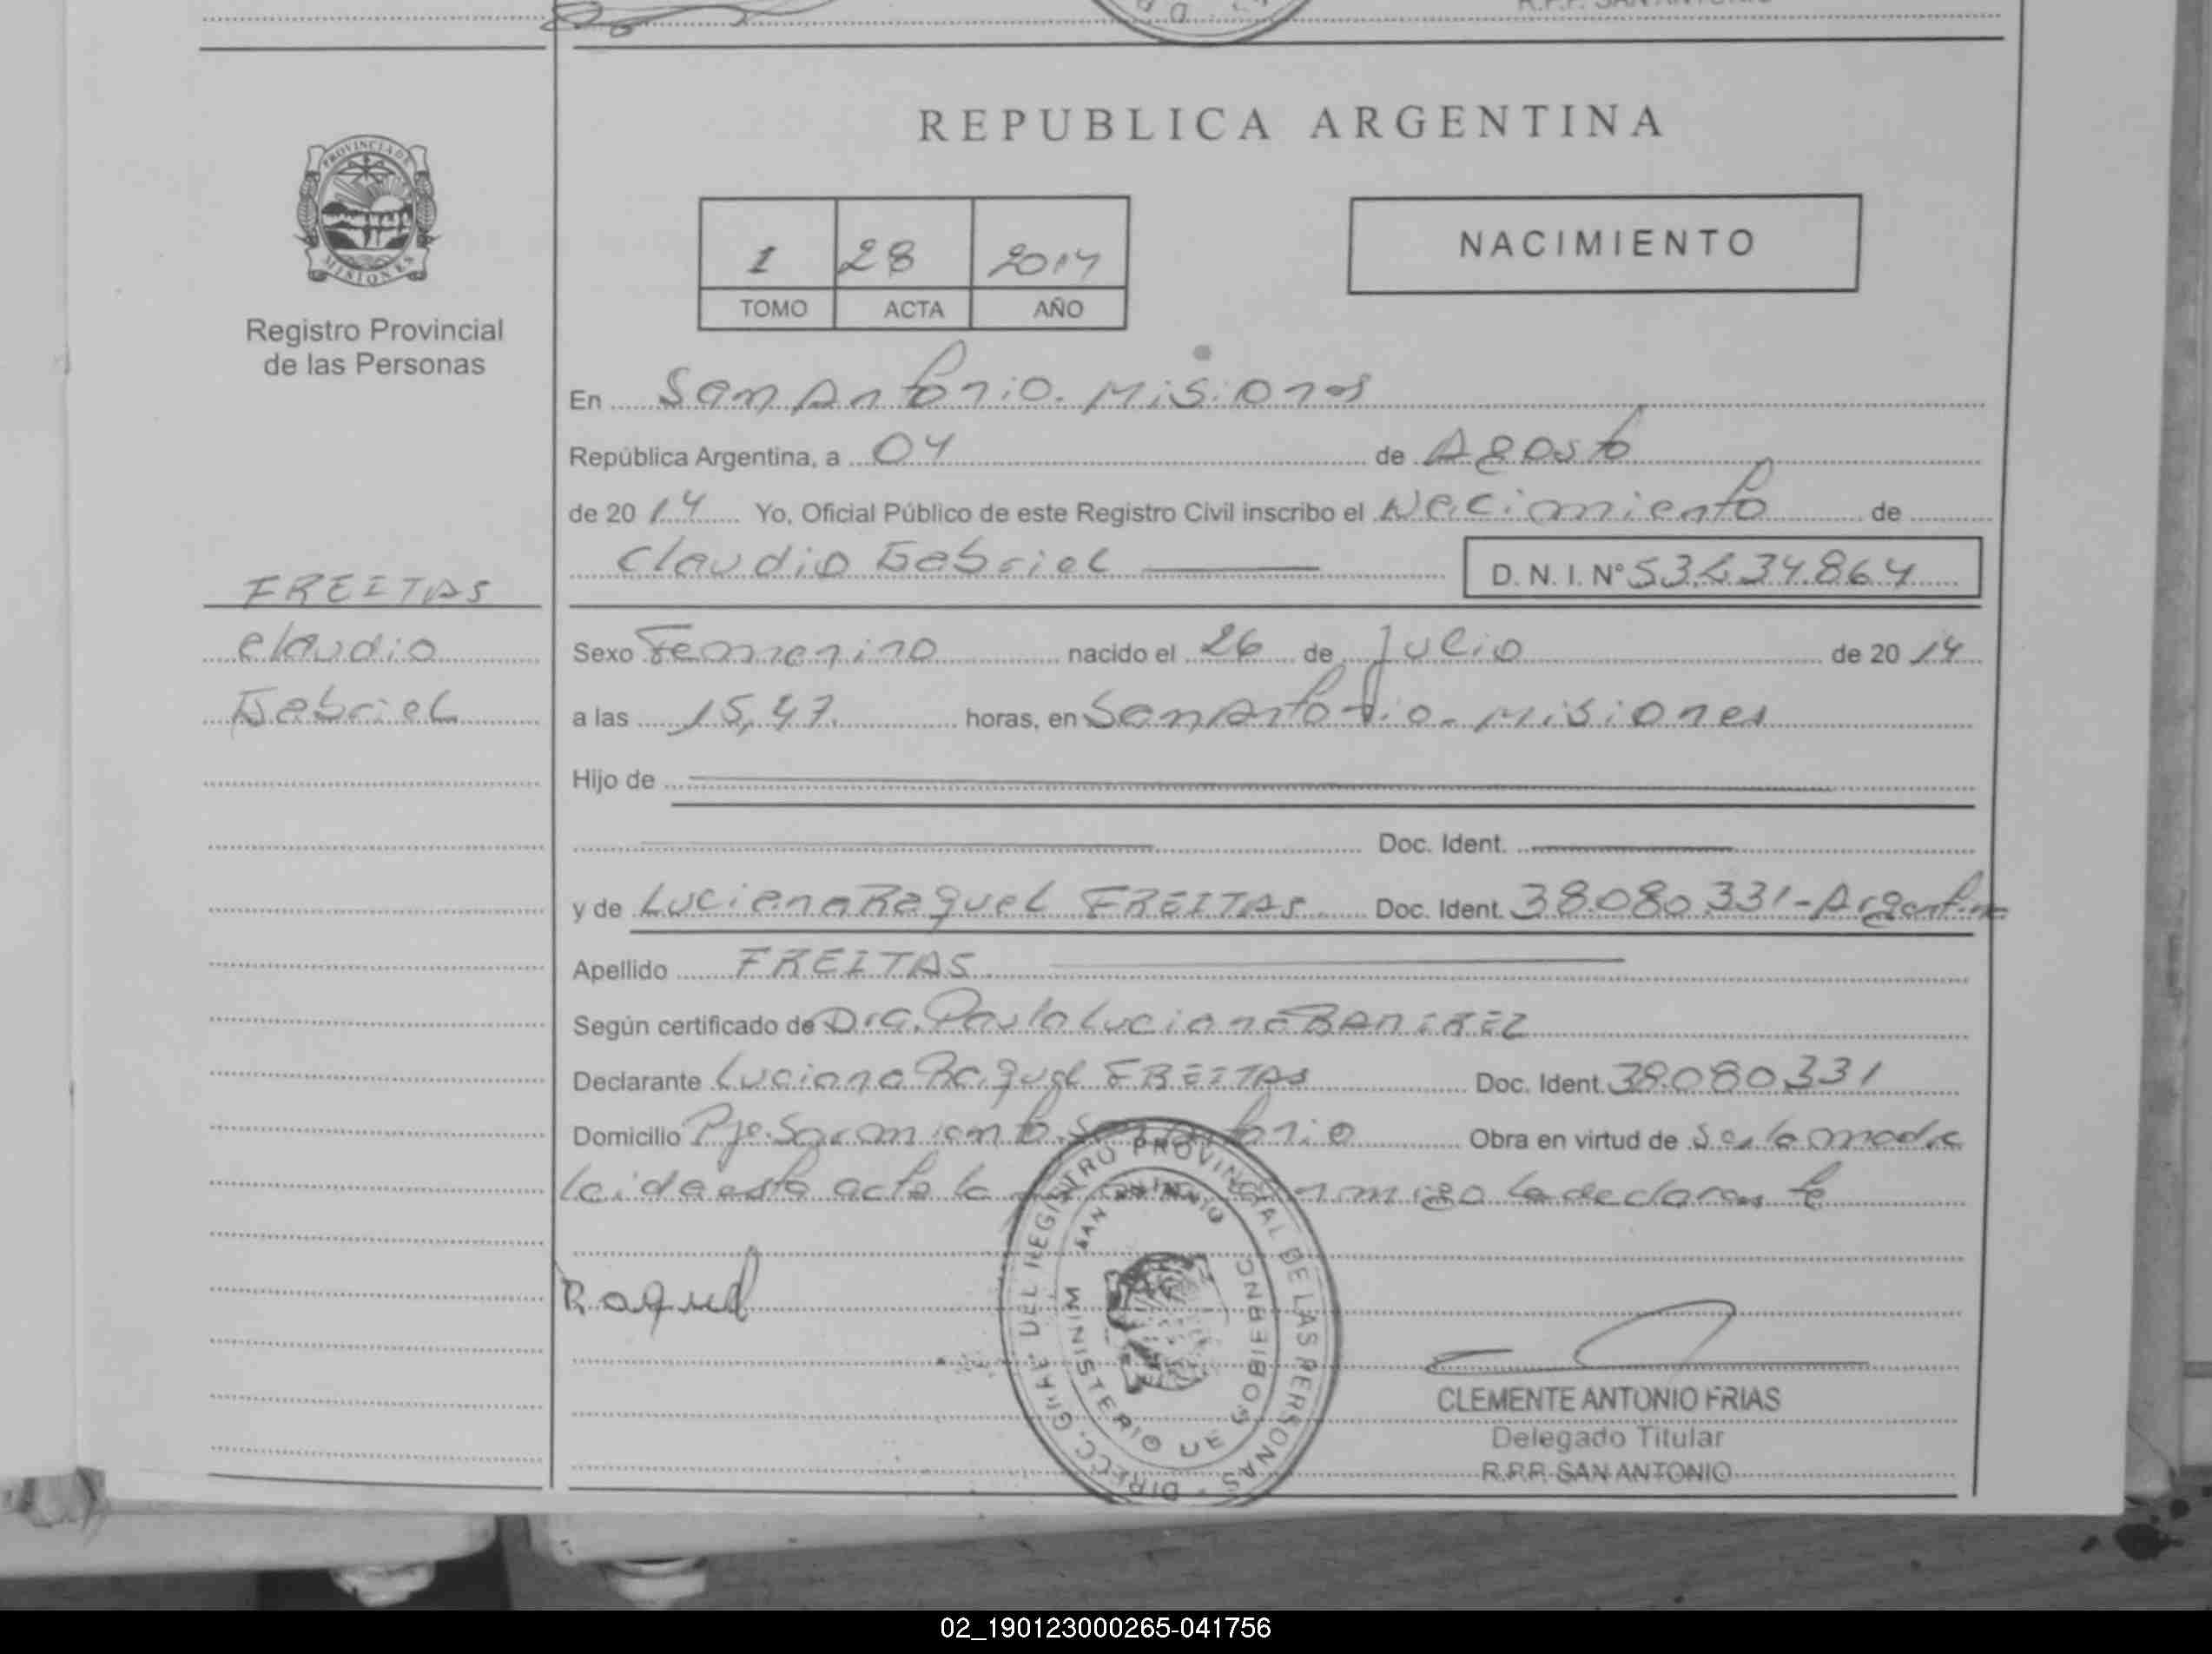 REPUBLICA ARGENTINA
PROVINCIA DE
MISIONES
Registro Provincial
de las Personas
1 28 2014
TOMO ACTA AÑO
NACIMIENTO
En San Antonio - Misiones
República Argentina, a 04 de Agosto
de 20 14 Yo, Oficial Público de este Registro Civil inscribo el Nacimiento de
Claudio Gabriel D. N. I. Nº
FREITAS
Claudio
Gabriel
Sexo Femenino nacido el 26 de Julio de 20 14
a las 15,47 horas, en San Antonio - Misiones
Hijo de
Doc. Ident.
y de Luciana Raquel FREITAS Doc. Ident. 38.080.331 - Argentina
Apellido FREITAS
Según certificado de Dra. Paula Luciana
Declarante Luciana Raquel FREITAS Doc. Ident. 38.080.331
Domicilio Pje. Sarmiento. San Antonio Obra en virtud de Ser la madre
Leida esta acta la conmigo la declarante
Raquel
DIRECC. GRAL. DEL REGISTRO PROVINCIAL DE LAS PERSONAS
SAN ANTONIO
MINISTERIO DE GOBIERNO
CLEMENTE ANTONIO FRIAS
Delegado Titular
R.P.P. SAN ANTONIO
02_190123000265-041756